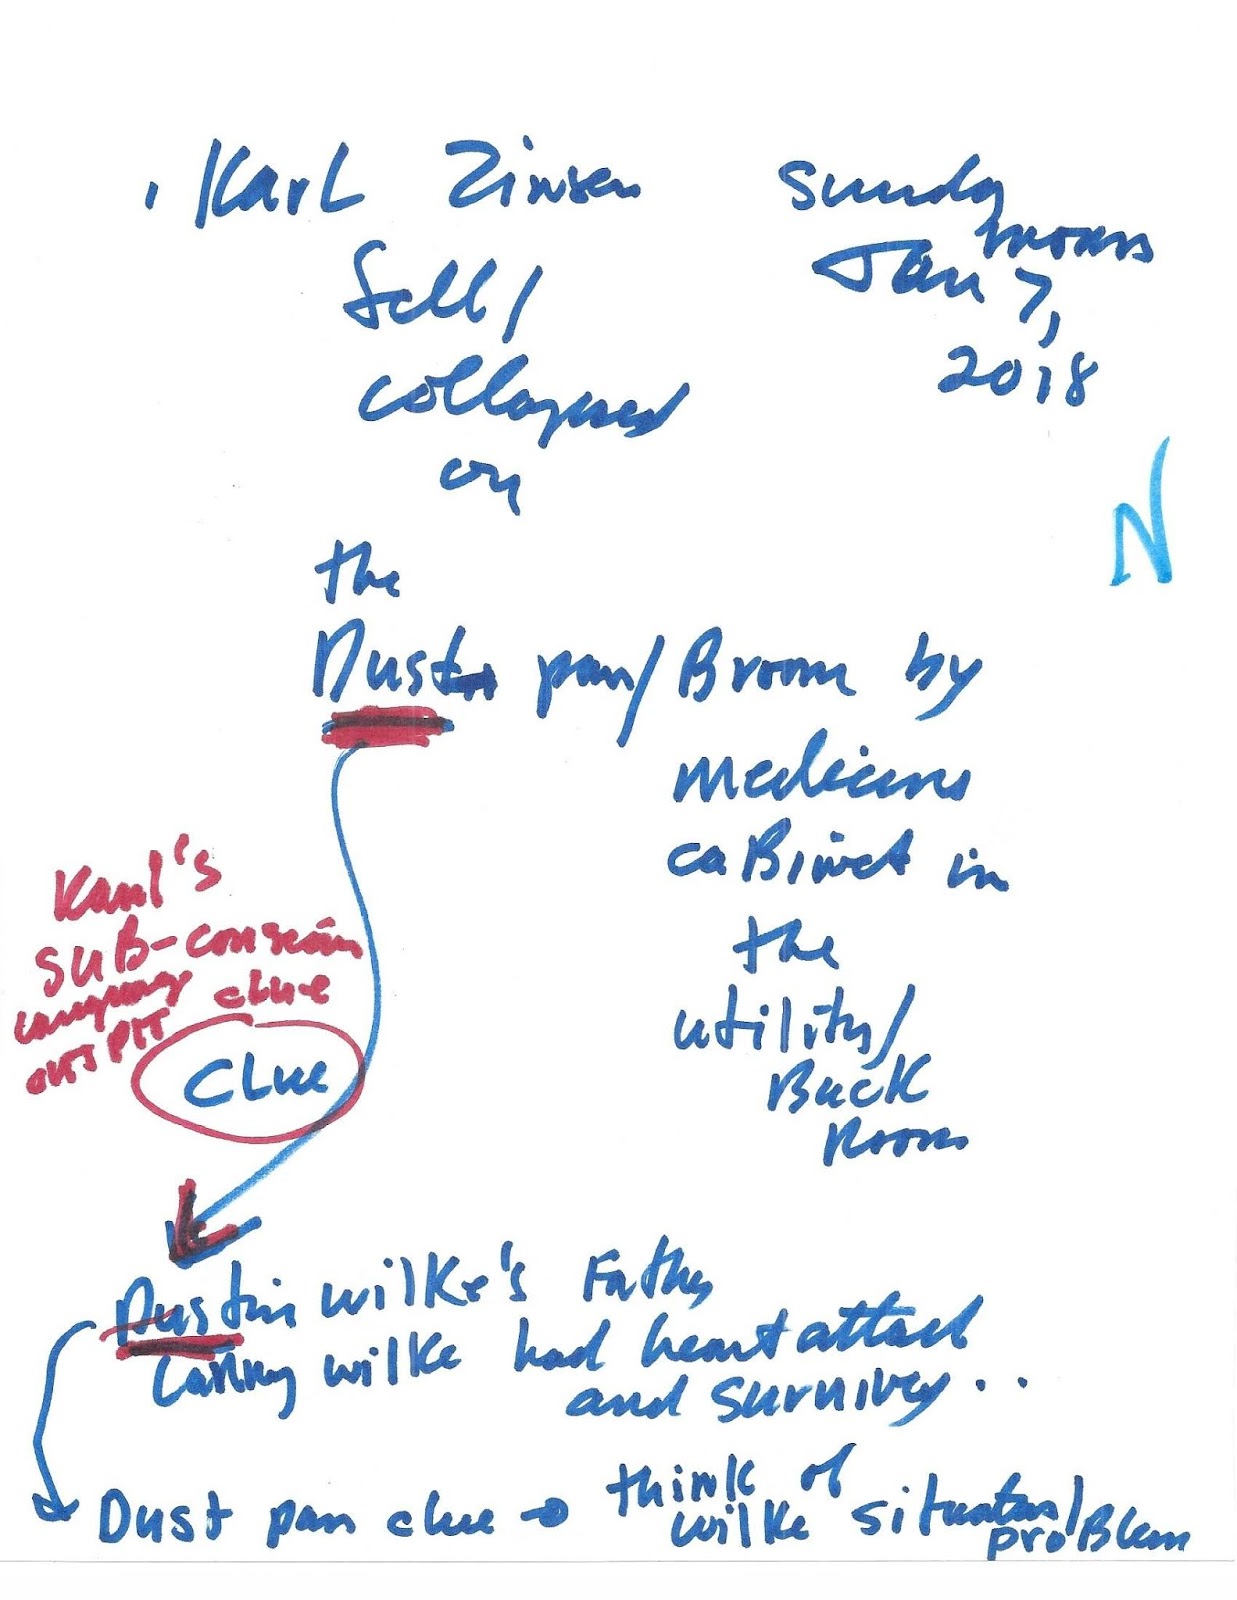 Karl Zinsen
Sunday
morn
Jan 7,
2018
fell/
collapsed
on
N
the
Dust pan/Broom by
medicine
caBinet in
the
utility/
Back
Room
Karl's
SUB-conscious
language clue
outPUT
Clue
Dustin wilke's Father
Larry wilke had heart attack
and survived..
Dust pan clue → think of
wilke situation/
proBlem